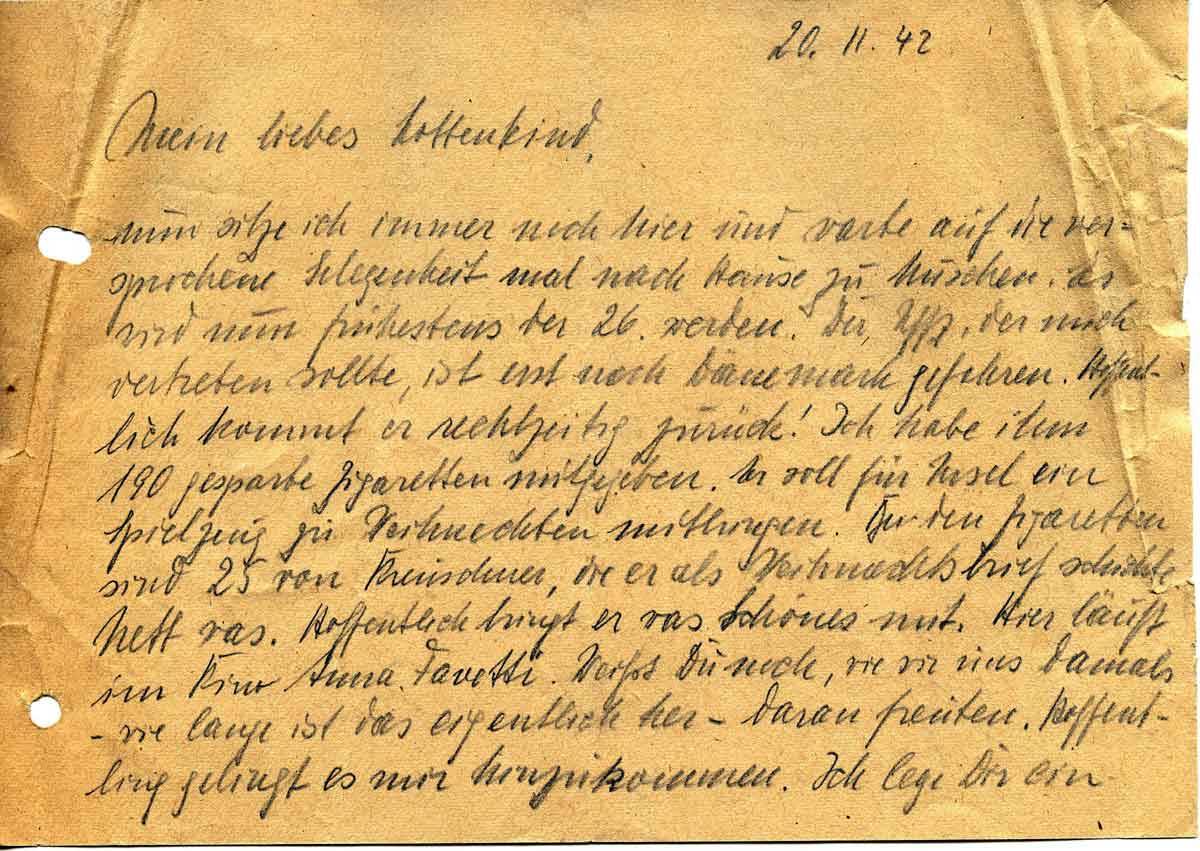 20. 11. 42
Mein liebes Lottenkind,
nun sitze ich immer noch hier und warte auf die ver-
sprochene Gelegenheit mal nach Hause zu huschen. Es
wird nun frühestens der 26. werden. Der Uffz, der mich
vertreten sollte, ist erst noch Dänemark gefahren. Hoffent-
lich kommt er rechtzeitig zurück! Ich habe ihm
190 gesparte Zigaretten mitgegeben. Er soll für ein
Spielzeug zu Weihnachten mitbringen. den Zigaretten
sind 25 von die er als Weihnachtsbrief schickte
Nett was. Hoffentlich bringt er was Schönes mit. Hier läuft
im Kino Anna Favetti. Weißt Du noch, wie wir uns damals
- wie lange ist das eigentlich her - daran freuten. Hoffent-
gelingt es mir hinzukommen. Ich lege Dir ein